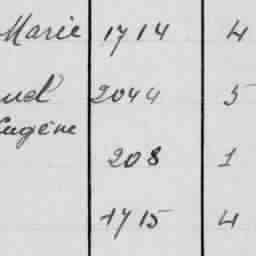 Marie 1714 4
uel 2044 5
Eugène
208 1
1715 4